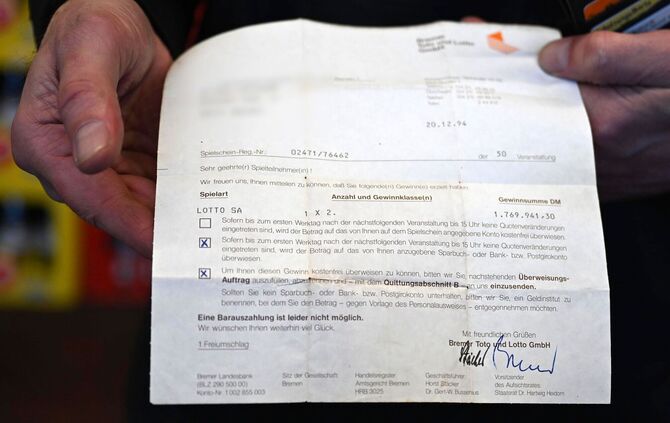 Bremer
Toto und Lotto
GmbH
20.12.94
Spielschein-Reg.-Nr.: 02471/76462 der 50 Veranstaltung
Sehr geehrte(r) Spielteilnehmer(in)!
Wir freuen uns, Ihnen mitteilen zu können, daß Sie folgende(n) Gewinn(e) erzielt haben:
Spielart Anzahl und Gewinnklasse(n) Gewinnsumme DM
LOTTO SA 1 X 2. 1.769.941,30
Sofern bis zum ersten Werktag nach der nächstfolgenden Veranstaltung bis 15 Uhr keine Quotenveränderungen
eingetreten sind, wird der Betrag auf das von Ihnen auf dem Spielschein angegebene Konto kostenfrei überwiesen.
Sofern bis zum ersten Werktag nach der nächstfolgenden Veranstaltung bis 15 Uhr keine Quotenveränderungen
eingetreten sind, wird der Betrag auf das von Ihnen anzugebene Sparbuch- oder Bank- bzw. Postgirokonto
überwiesen.
Um Ihnen diesen Gewinn kostenfrei überweisen zu können, bitten wir Sie, nachstehenden Überweisungs-
Auftrag auszufüllen, abzutrennen und – mit dem Quittungsabschnitt B – an uns einzusenden.
Sollten Sie kein Sparbuch- oder Bank- bzw. Postgirokonto unterhalten, bitten wir Sie, ein Geldinstitut zu
benennen, bei dem Sie den Betrag – gegen Vorlage des Personalausweises – entgegennehmen möchten.
Eine Barauszahlung ist leider nicht möglich.
Wir wünschen Ihnen weiterhin viel Glück.
Mit freundlichen Grüßen
Bremer Toto und Lotto GmbH
1 Freiumschlag
Bremer Landesbank Sitz der Gesellschaft Handelsregister Geschäftsführer Vorsitzender
(BLZ 290 500 00) Bremen Amtsgericht Bremen Horst Stäcker des Aufsichtsrates
Konto-Nr. 1 002 855 003 HRB 3025 Dr. Gert-W. Bussenius Staatsrat Dr. Hartwig Heidorn